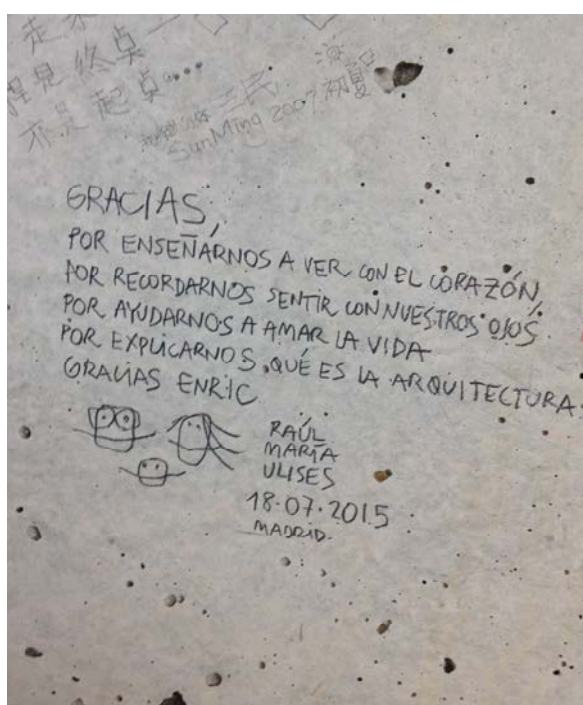 終点
亦是起点...
三民
SunMing 2007. 初夏
GRACIAS,
POR ENSEÑARNOS A VER CON EL CORAZÓN,
POR RECORDARNOS SENTIR CON NUESTROS OJOS
POR AYUDARNOS A AMAR LA VIDA
POR EXPLICARNOS QUÉ ES LA ARQUITECTURA.
GRACIAS ENRIC
RAÚL
MARÍA
ULISES
18·07·2015
MADRID.